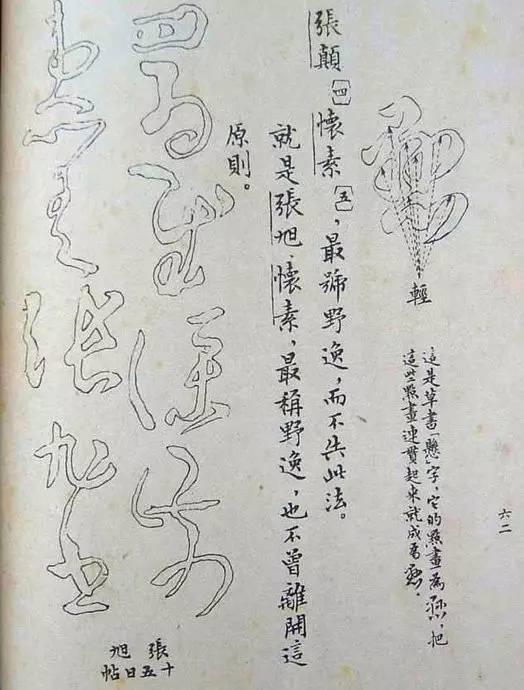 六二
輕
這是草書「懸」字，它的點畫為，把
這些點畫連貫起來就成為。
張顛〔四〕懷素〔五〕，最號野逸，而不失此法。
就是張旭、懷素，最稱野逸，也不曾離開這
原則。
張旭
十五日帖